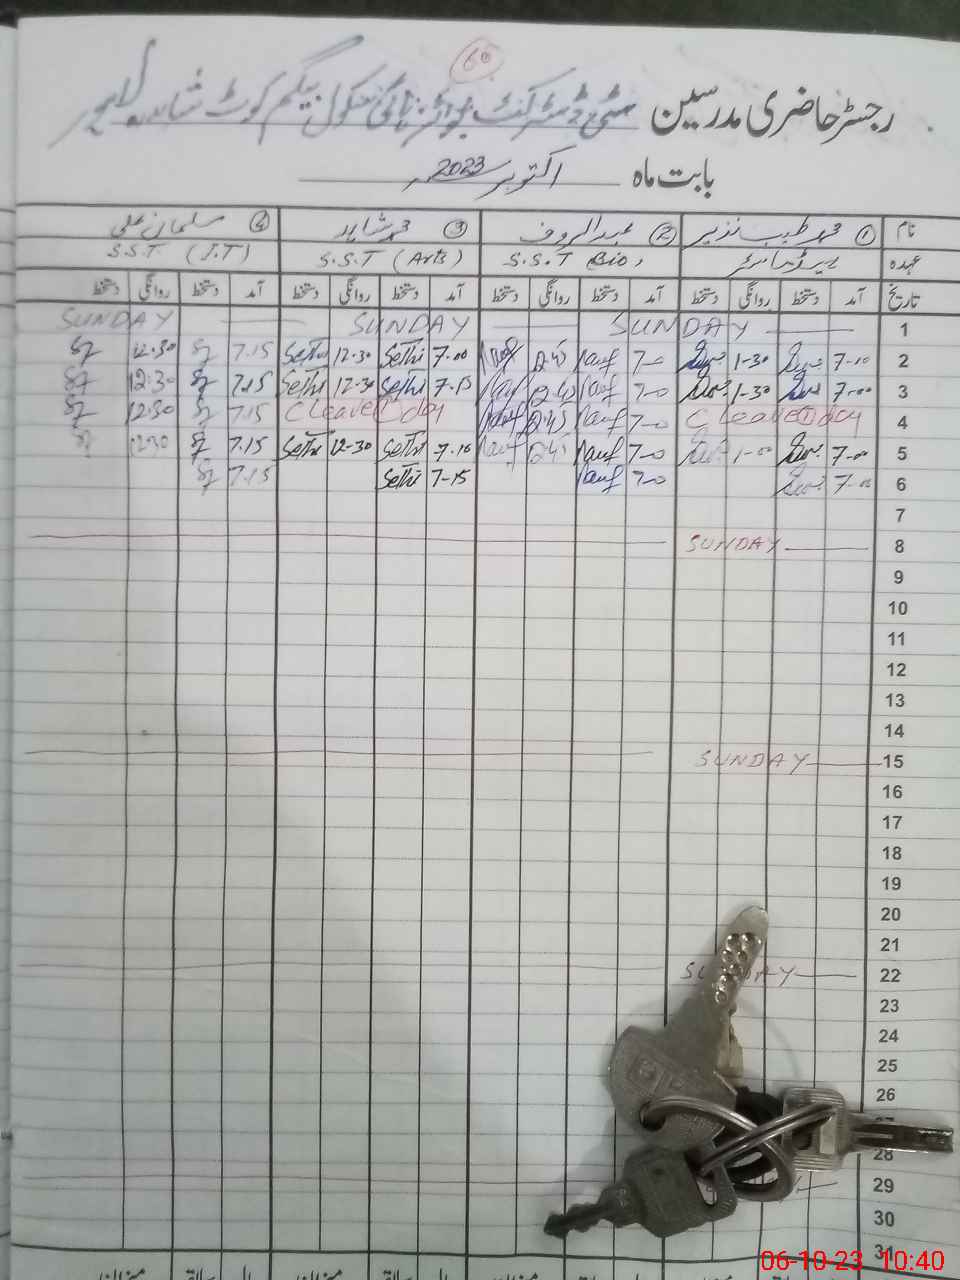 60
رجسٹر حاضری مدرسین سٹی ڈسٹرکٹ بوائز ہائی سکول بیگم کوٹ شاہدرہ لاہور
بابت ماہ اکتوبر 2023ء
نام ① محمد طیب نذیر ② عبدالروف ③ محمد شاہد ④ سلمان علی
عہدہ S.S.T Bio, S.S.T (Arts) S.S.T (I.T)
تاریخ آمد دستخط روانگی دستخط آمد دستخط روانگی دستخط آمد دستخط روانگی دستخط آمد دستخط روانگی دستخط
1 SUNDAY SUNDAY SUNDAY
2 7-10 1-30 7-0 Rauf 2-45 Rauf 7-00 Sethi 12-30 Sethi 7.15 12.30
3 7-00 1-30 7-0 Rauf 2-45 Rauf 7-15 Sethi 12-30 Sethi 7.15 12:30
4 C leave ① day 7-0 Rauf 2-45 Rauf C leave ① day 7.15 12:30
5 7-00 1-00 7-0 Rauf 2-45 Rauf 7-10 Sethi 12-30 Sethi 7.15 12-30
6 7-00 7-0 Rauf 7-15 Sethi 7.15
7
8 SUNDAY
9
10
11
12
13
14
15 SUNDAY
16
17
18
19
20
21
22 SUNDAY
23
24
25
26
27
28
29
30
31
06-10-23 10:40